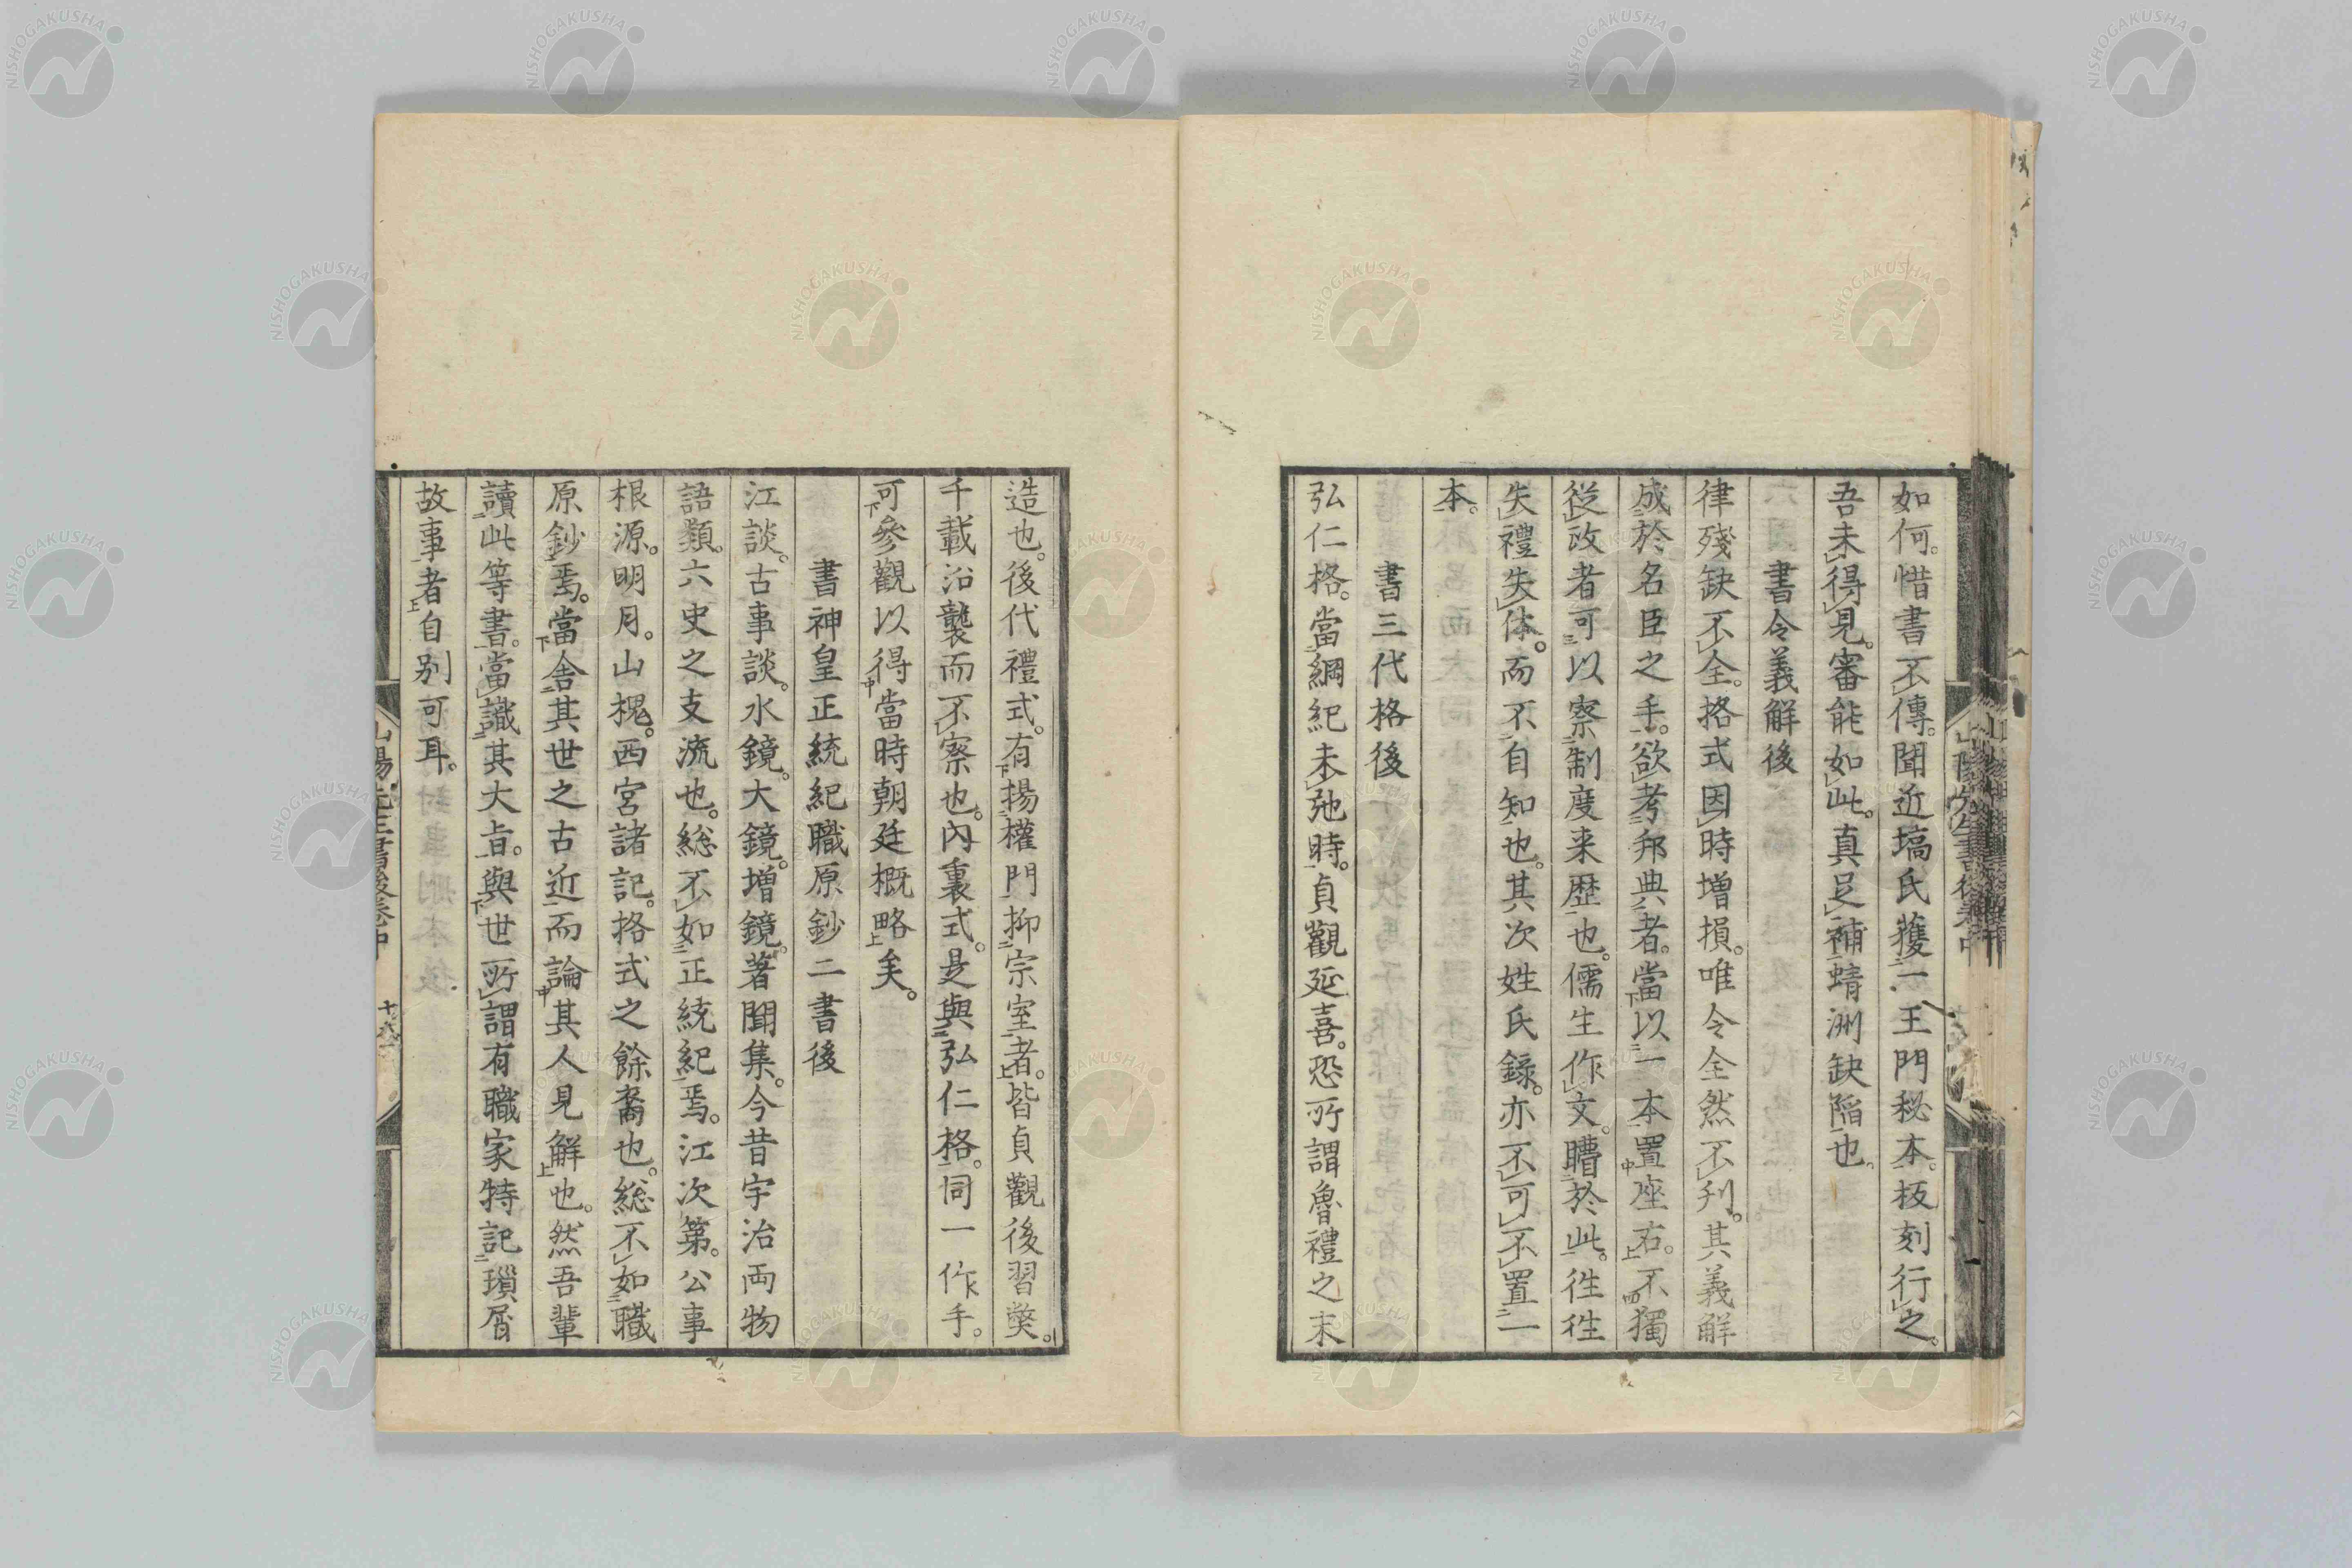 如何。惜書不傳。聞近塙氏獲一王門秘本。板刻行之。
吾未得見。審能如此。真足補蜻洲缺陷也。
書令義解後
律殘缺不全。格式因時增損。唯令全然不刋。其義解
成於名臣之手。欲考邦典者。當以一本置座右。不獨
從改者可以察制度来歴也。儒生作文。瞶於此。徃徃
失禮失体。而不自知也。其次姓氏錄。亦不可不置一
本。
書三代格後
弘仁格。當綱紀未弛時。貞觀延喜。恐所謂魯禮之末
造也。後代禮式。有揚權門抑宗室者。皆貞觀後習獘。
千載沿襲而不察也。內裏式。是與弘仁格。同一作手。
可參觀以得當時朝廷概略矣。
書神皇正統紀職原鈔二書後
江談。古事談。水鏡。大鏡。增鏡。著聞集。今昔宇治両物
語類。六史之支流也。総不如正統紀焉。江次第。公事
根源。明月。山槐。西宮諸記。格式之餘裔也。総不如職
原鈔焉。當舎其世之古近而論其人見解也。然吾輩
讀此等書。當識其大旨。與世所謂有職家特記瑣屑
故事者自別可耳。
山陽先生書後卷中
NISHOGAKUSHA